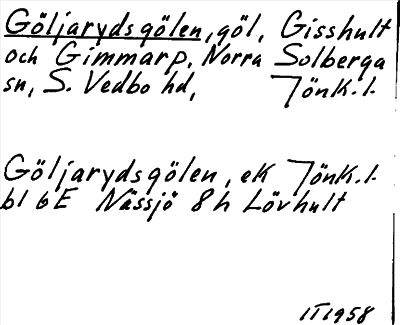 Göljarydsgölen, göl, Gisshult
och Gimmarp, Norra Solberga
sn, S. Vedbo hd, Jönk.l.
Göljarydsgölen, ek Jönk.l.
bl 6E Nässjö 8h Lövhult
1958